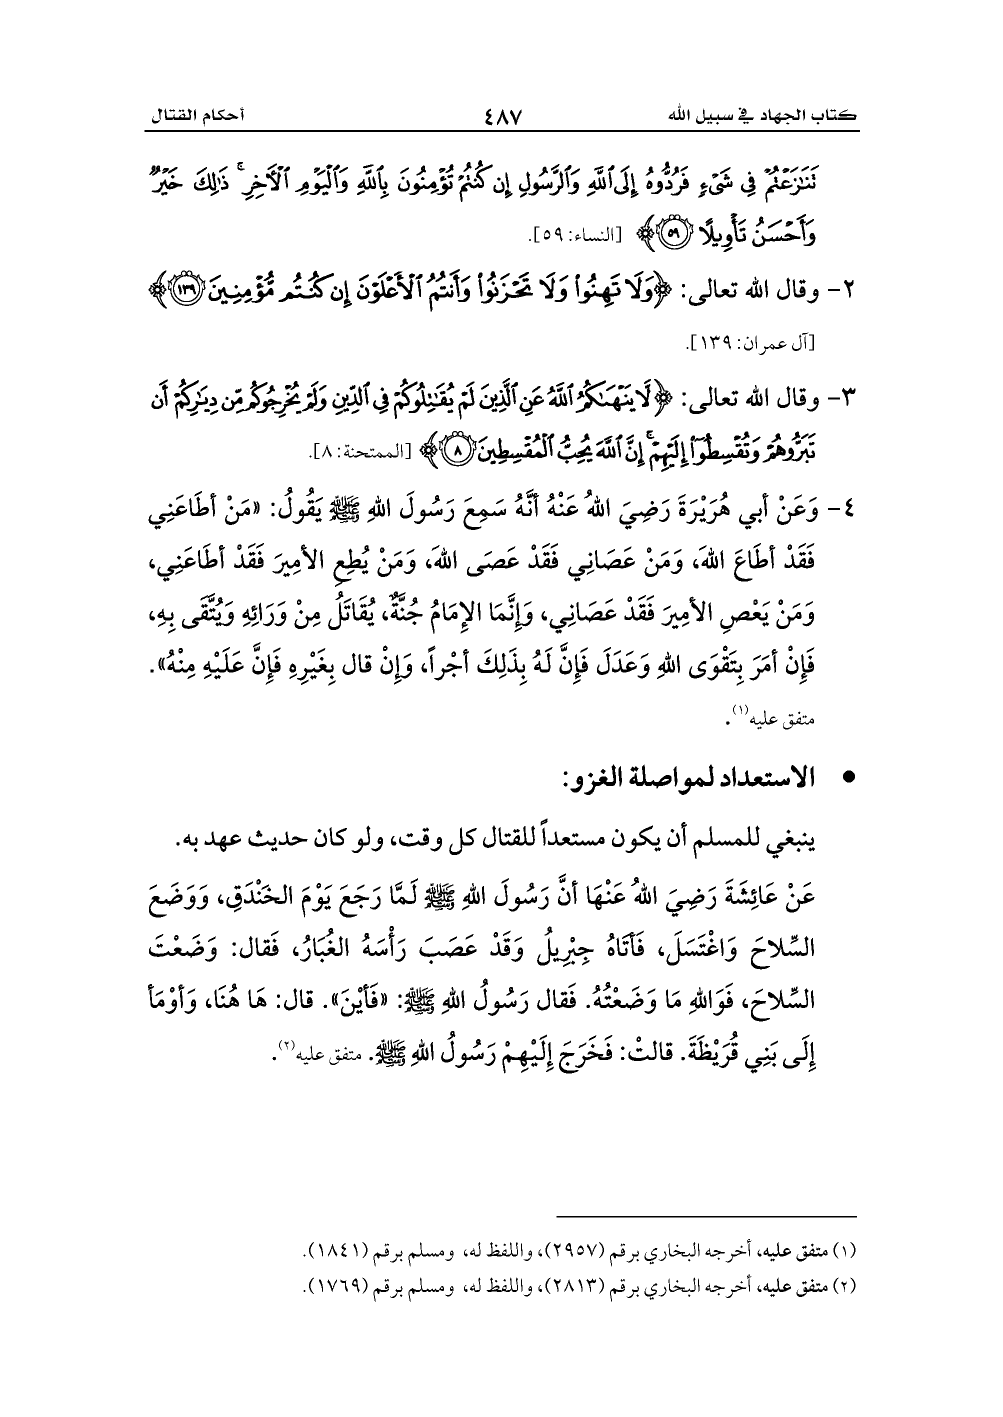 كتاب الجهاد في سبيل الله ٤٨٧ أحكام القتال
تَنَٰزَعۡتُمۡ فِي شَيۡءٖ فَرُدُّوهُ إِلَى ٱللَّهِ وَٱلرَّسُولِ إِن كُنتُمۡ تُؤۡمِنُونَ بِٱللَّهِ وَٱلۡيَوۡمِ ٱلۡأٓخِرِۚ ذَٰلِكَ خَيۡرٞ
وَأَحۡسَنُ تَأۡوِيلًا ﴿٥٩﴾ [النساء: ٥٩].
٢- وقال الله تعالى: ﴿وَلَا تَهِنُواْ وَلَا تَحۡزَنُواْ وَأَنتُمُ ٱلۡأَعۡلَوۡنَ إِن كُنتُم مُّؤۡمِنِينَ ١٣٩﴾
[آل عمران: ١٣٩].
٣- وقال الله تعالى: ﴿لَّا يَنۡهَىٰكُمُ ٱللَّهُ عَنِ ٱلَّذِينَ لَمۡ يُقَٰتِلُوكُمۡ فِي ٱلدِّينِ وَلَمۡ يُخۡرِجُوكُم مِّن دِيَٰرِكُمۡ أَن
تَبَرُّوهُمۡ وَتُقۡسِطُوٓاْ إِلَيۡهِمۡۚ إِنَّ ٱللَّهَ يُحِبُّ ٱلۡمُقۡسِطِينَ ٨﴾ [الممتحنة: ٨].
٤- وَعَنْ أبي هُرَيْرَةَ رَضِيَ اللهُ عَنْهُ أنَّهُ سَمِعَ رَسُولَ اللهِ ﷺ يَقُولُ: «مَنْ أطَاعَنِي
فَقَدْ أطَاعَ اللهَ، وَمَنْ عَصَانِي فَقَدْ عَصَى اللهَ، وَمَنْ يُطِعِ الأمِيرَ فَقَدْ أطَاعَنِي،
وَمَنْ يَعْصِ الأمِيرَ فَقَدْ عَصَانِي، وَإِنَّمَا الإمَامُ جُنَّةٌ، يُقَاتَلُ مِنْ وَرَائِهِ وَيُتَّقَى بِهِ،
فَإِنْ أمَرَ بِتَقْوَى اللهِ وَعَدَلَ فَإِنَّ لَهُ بِذَلِكَ أجْراً، وَإِنْ قال بِغَيْرِهِ فَإِنَّ عَلَيْهِ مِنْهُ».
متفق عليه(١).
• الاستعداد لمواصلة الغزو:
ينبغي للمسلم أن يكون مستعداً للقتال كل وقت، ولو كان حديث عهد به.
عَنْ عَائِشَةَ رَضِيَ اللهُ عَنْهَا أنَّ رَسُولَ اللهِ ﷺ لَمَّا رَجَعَ يَوْمَ الخَنْدَقِ، وَوَضَعَ
السِّلاحَ وَاغْتَسَلَ، فَأتَاهُ جِبْرِيلُ وَقَدْ عَصَبَ رَأْسَهُ الغُبَارُ، فَقال: وَضَعْتَ
السِّلاحَ، فَوَاللهِ مَا وَضَعْتُهُ. فَقال رَسُولُ اللهِ ﷺ: «فَأيْنَ». قال: هَا هُنَا، وَأوْمَأ
إِلَى بَنِي قُرَيْظَةَ. قالتْ: فَخَرَجَ إِلَيْهِمْ رَسُولُ اللهِ ﷺ. متفق عليه(٢).
(١) متفق عليه، أخرجه البخاري برقم (٢٩٥٧)، واللفظ له، ومسلم برقم (١٨٤١).
(٢) متفق عليه، أخرجه البخاري برقم (٢٨١٣)، واللفظ له، ومسلم برقم (١٧٦٩).